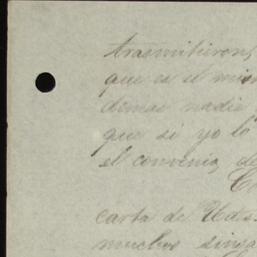 trasmitieron,
que es el mism
demas nadie
que si yo lo
el convenio, de
carta de Uds.
muchos sinsa